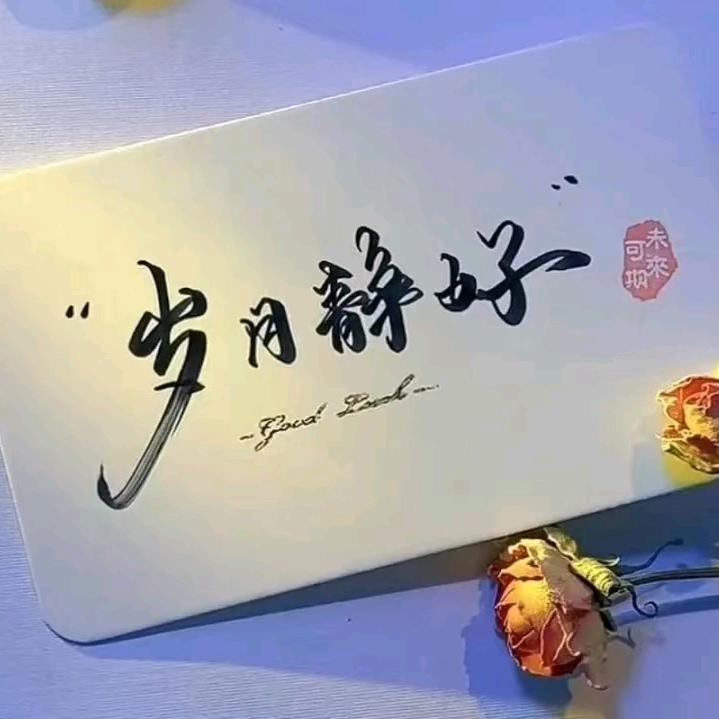 "岁月静好"
~Good Luck~
未來
可期